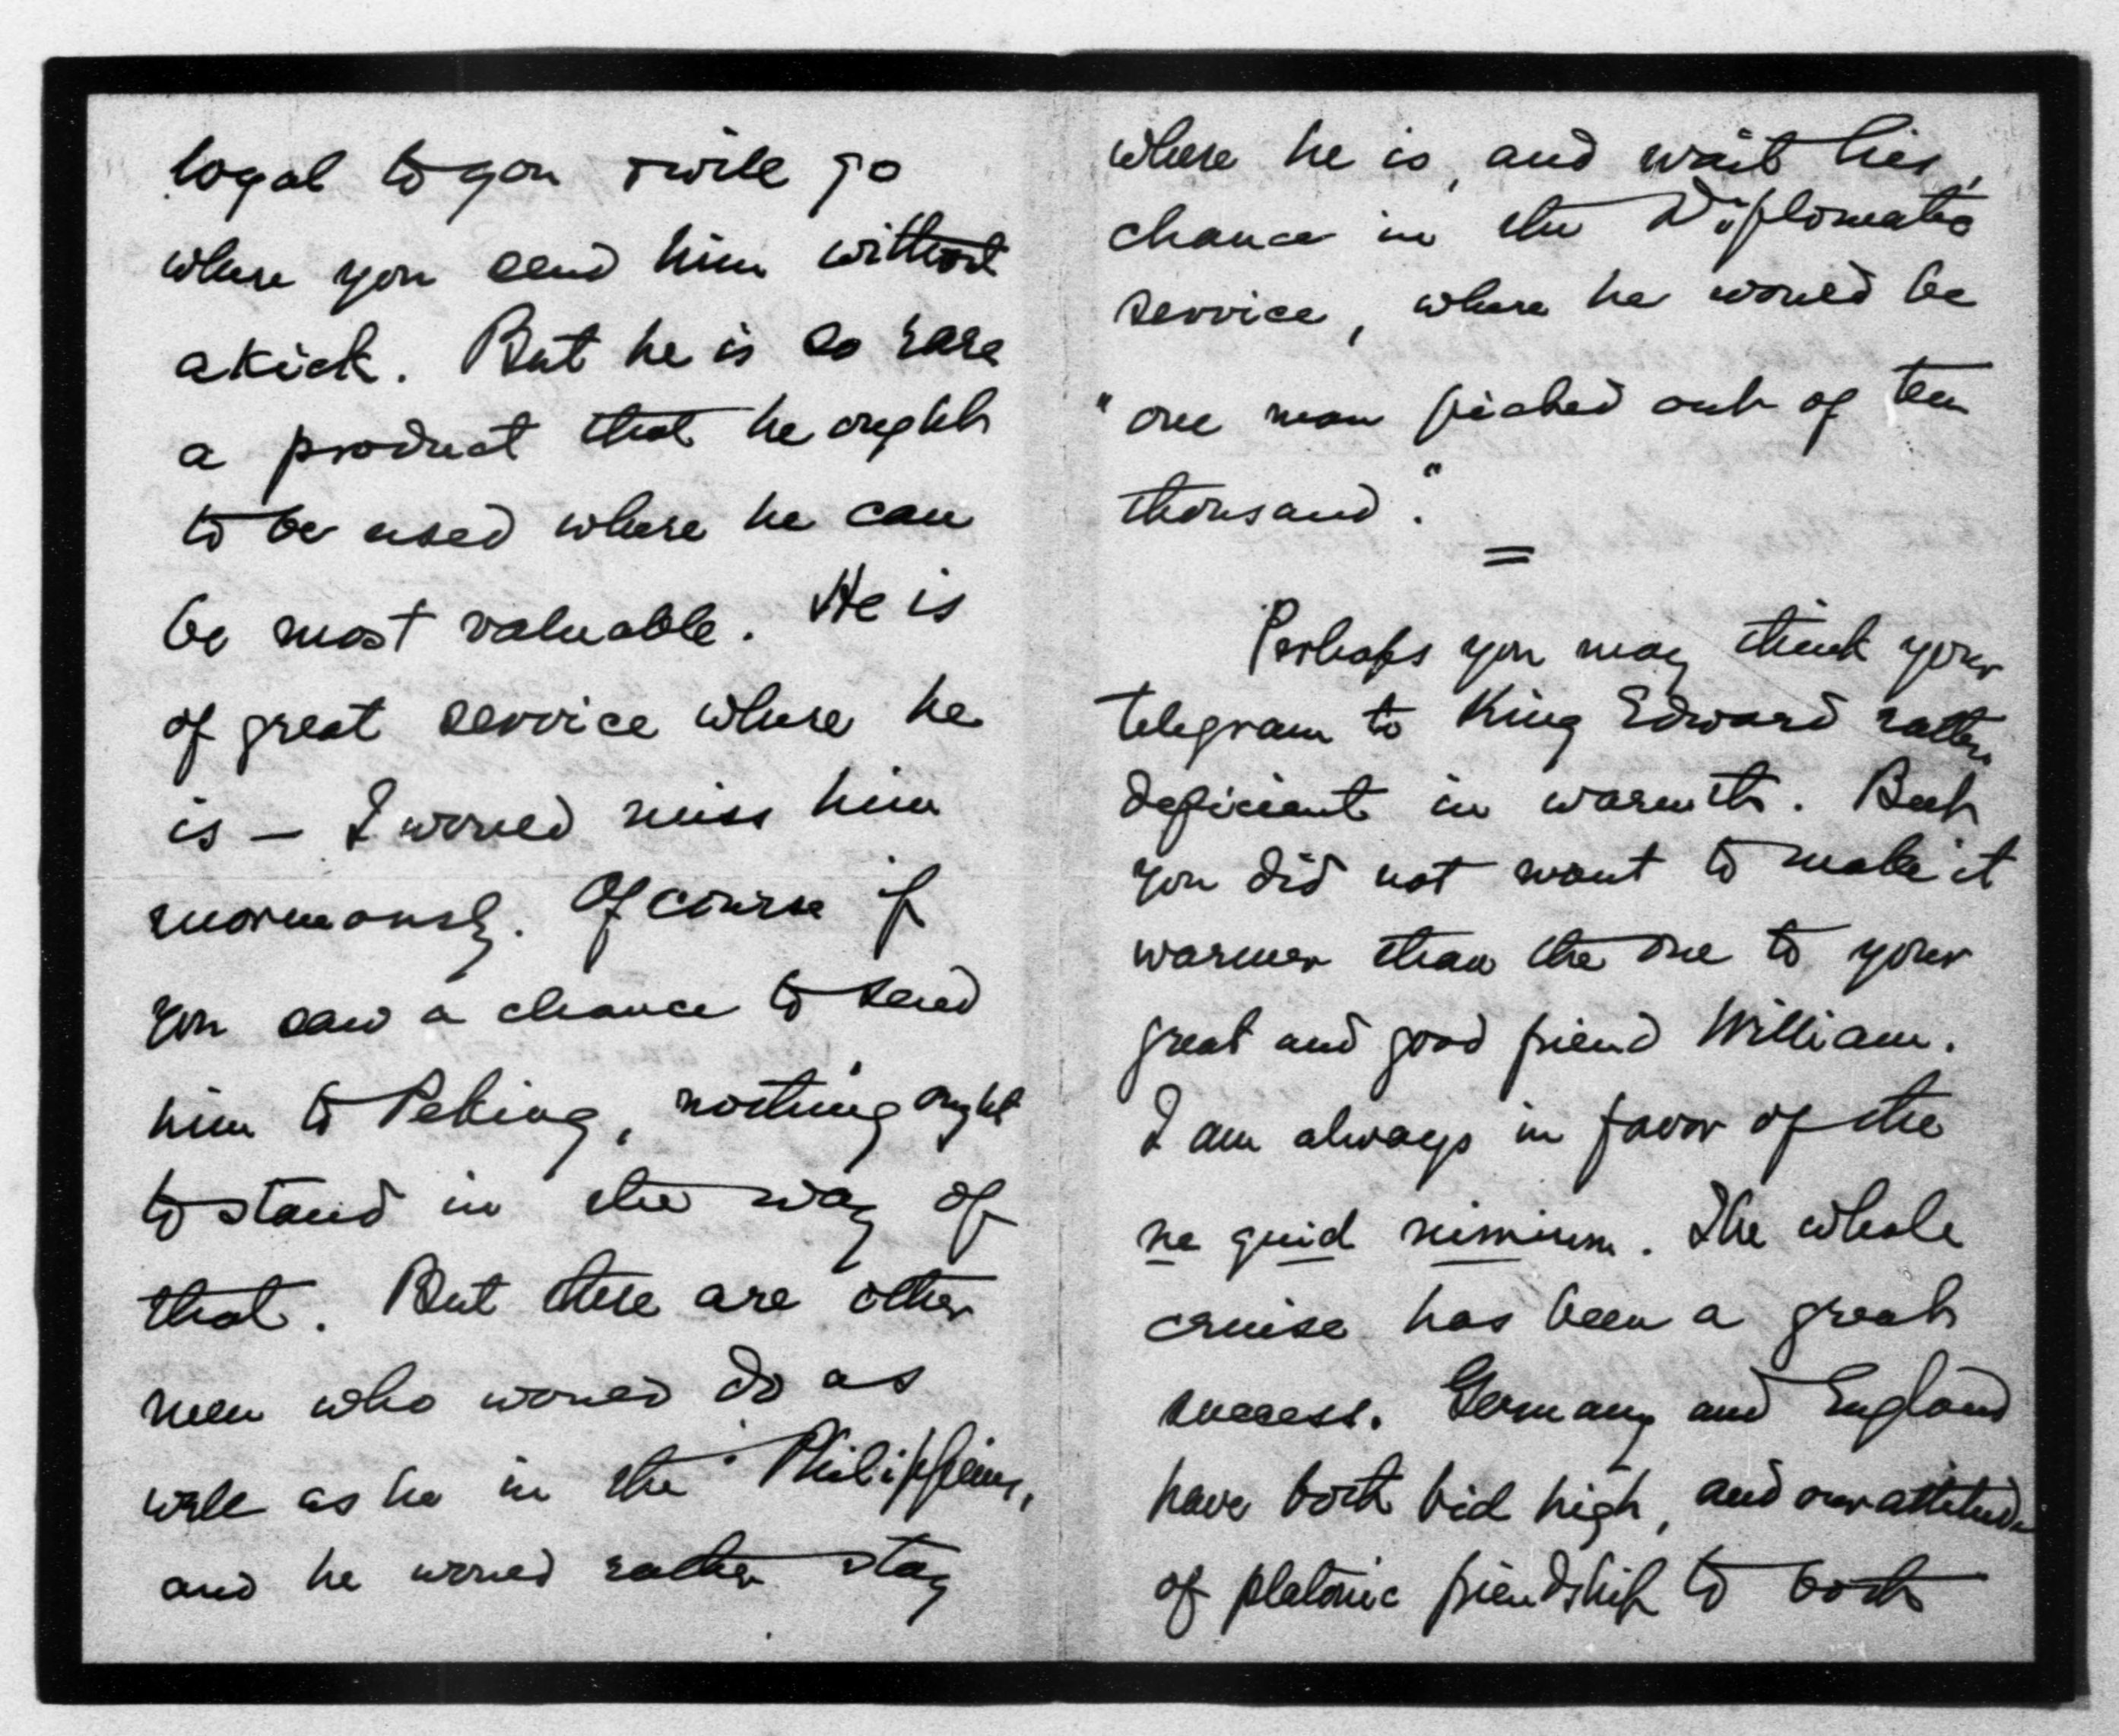 loyal to you & will go
where you send him without
a kick. But he is so rare
a product that he ought
to be used where he can
be most valuable. He is
of great service where he
is — I would miss him
enormously. Of course if
you saw a chance to send
him to Peking, nothing ought
to stand in the way of
that. But there are other
men who would do as
well as he in the Philippines,
and he would rather stay
where he is, and wait his
chance in the Diplomatic
service, where he would be
"one man picked out of ten
thousand."
=
Perhaps you may think your
telegram to King Edward rather
deficient in warmth. But
you did not want to make it
warmer than the one to your
great and good friend William.
I am always in favor of the
ne quid nimium. The whole
cruise has been a great
success. Germany and England
have both bid high, and our attitude
of platonic friendship to both